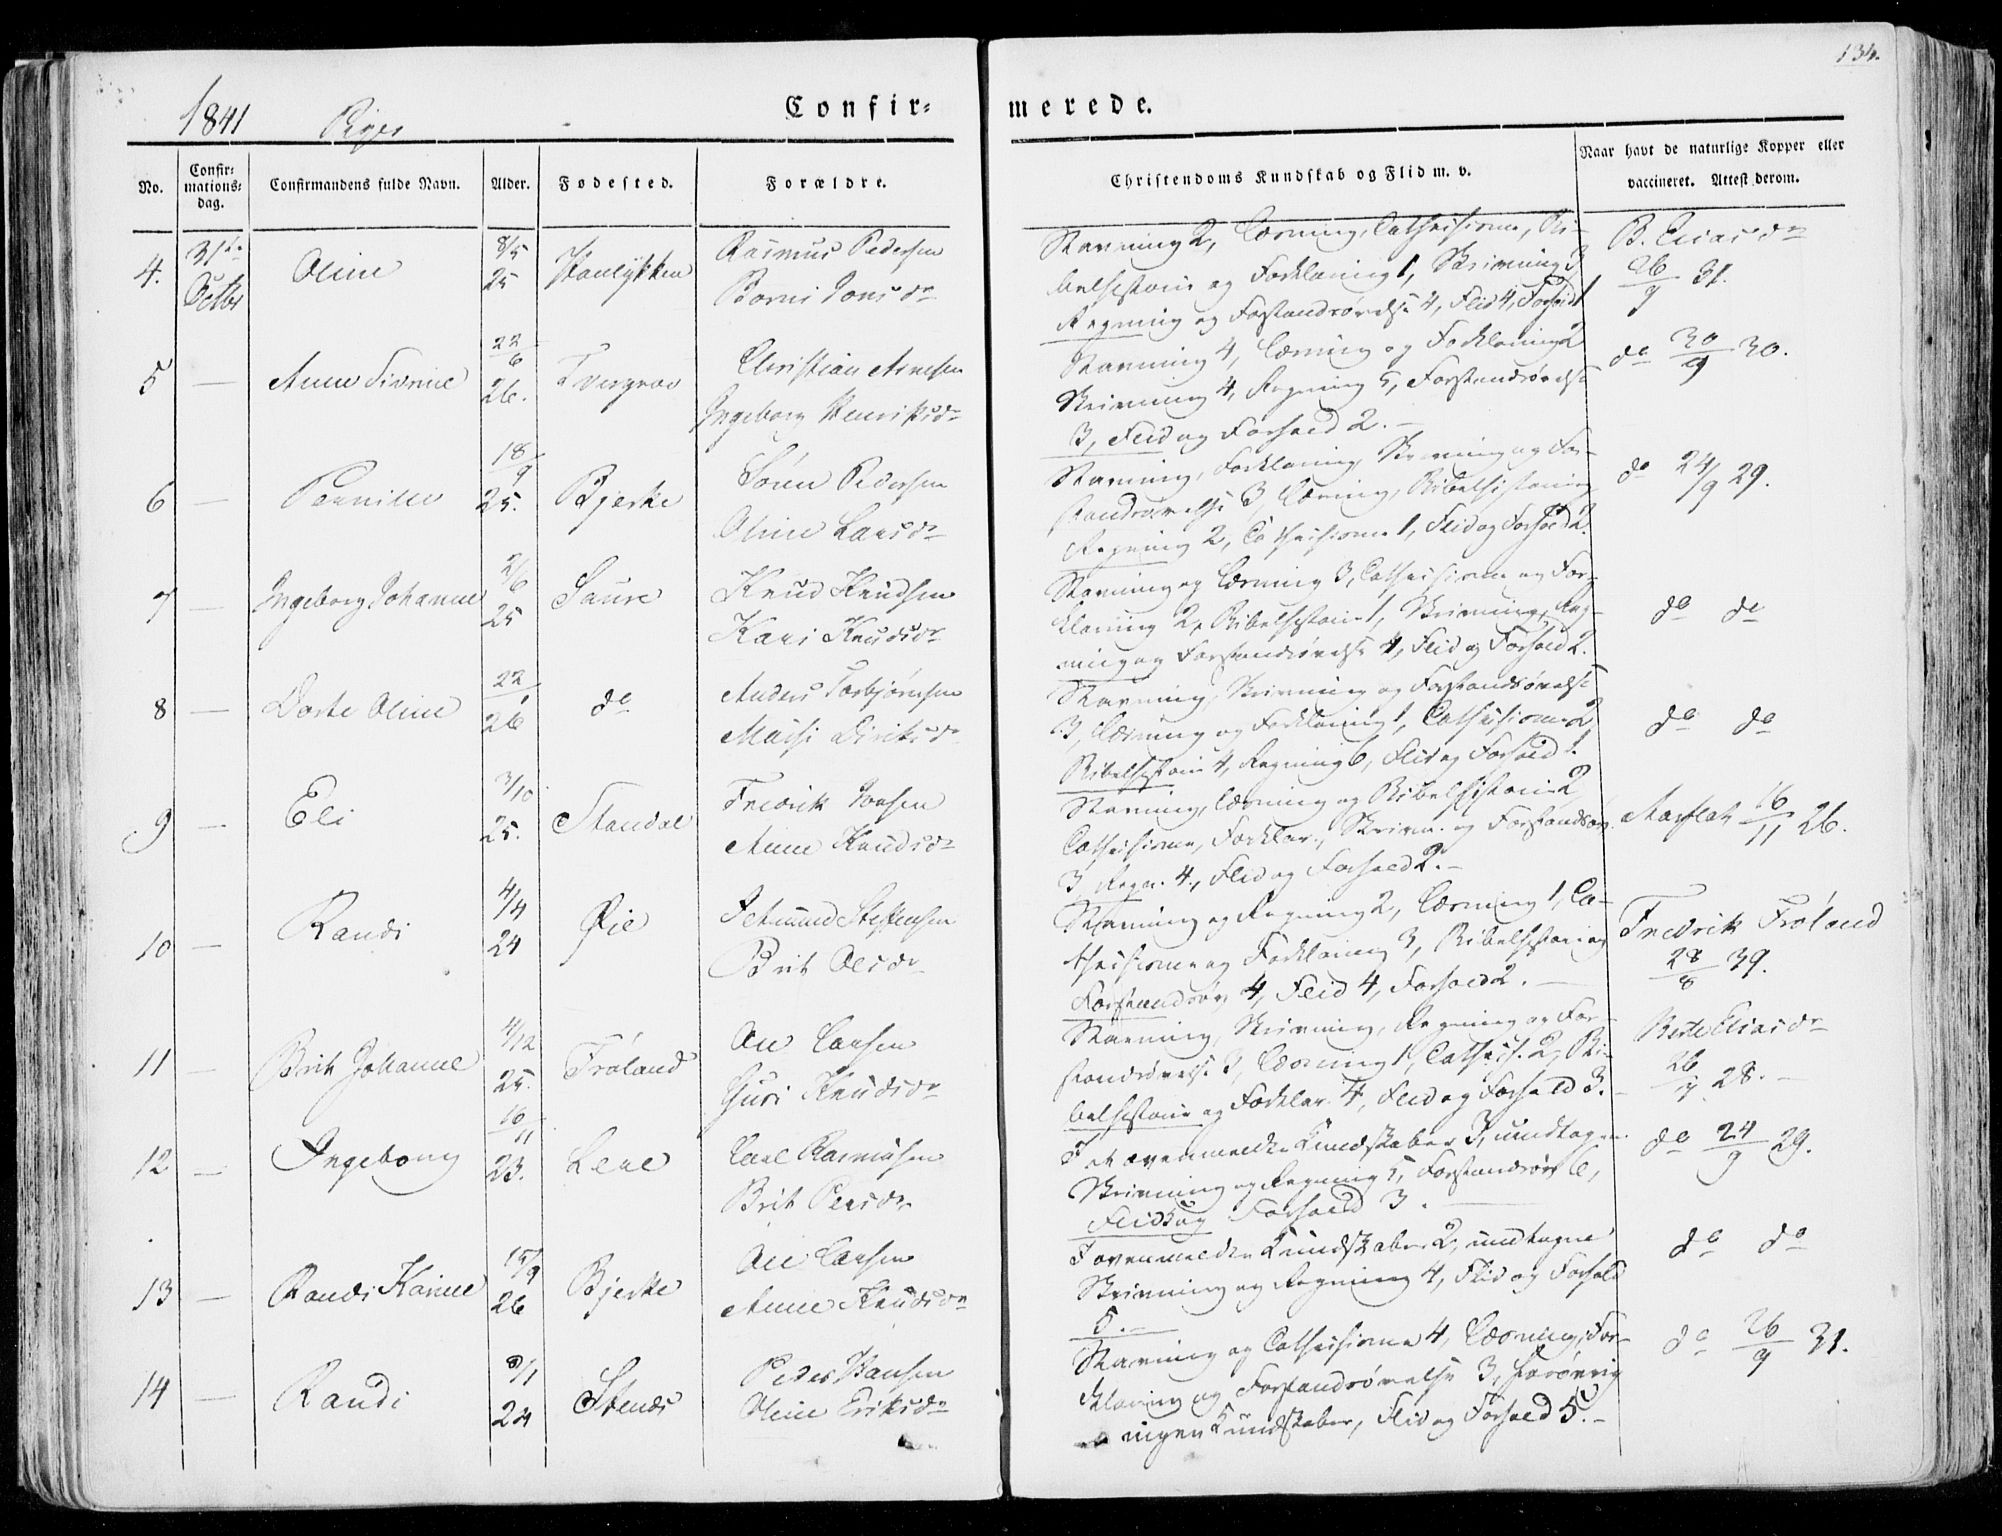 134.
1841 Piger
Confir= merede.
No.
Confir=
mations=
dag.
Confirmandens fulde Navn.
Alder.
Fødested.
Forældre.
Christendoms Kundskab og Flid m. v.
Naar havt de naturlige Kopper eller
vaccineret. Attest derom.
4. 31te Octbr Oline 8/5 25 Rasmus Pedersen
Jonsdr
Stavning 2, Læsning, Cathechisme, Bi-
belhistorie og Forklaring 1, Skrivning 3
Regning og Forstandsøvelse 4, Flid 4, Forhold 1
B. Eliasdr
26/9 31.
5 — Anne Sivrine 22/6 26. Christian Arnesen
Ingeborg Henriksdr
Stavning 4, Læsning og Forklaring 2
Skrivning 4, Regning 5, Forstandsøvelse
3, Flid og Forhold 2. —
do 30/9 30.
6 — Pernille 18/9 25. Bjerke Søren Pedersen
Oline Larsdr
Stavning, Forklaring, Skrivning og For-
standsøvelse 3, Læsning, Bibelhistorie
Regning 2, Cathechisme 1, Flid og Forhold 2.
do 24/9 29.
7 — Ingeborg Johanne 2/6 25 Saure Knud Knudsen
Kari Knudsdr
Stavning og Læsning 3, Cathechisme og For-
klaring 2, Bibelhistorie 1, Skrivning, Reg-
ning og Forstandsøvelse 4, Flid og Forhold 2.
do do
8 — Dorte Oline 22/1 26 do Anders Torbjørnsen
Diriksdr
Stavning, Skrivning og Forstandsøvelse
3, Læsning og Forklaring 1, Cathechisme 2
Bibelhistorie 4, Regning 6, Flid og Forhold 1.
do do
9 — Eli 3/10 25. Standal Fredrik Joesen
Anne Knudsdr
Stavning, Læsning og Bibelhistorie 2
Cathechisme, Forklar., Skrivn. og Forstandsøv.
3, Regn. 4, Flid og Forhold 2. —
Aarflot 16/11 26.
10 — Randi 4/4 24 Øie Steffensen
Brit Olsdr
Stavning og Regning 2, Læsning 1, Ca-
thechisme og Forklaring 3, Bibelhistorie og
Forstandsøv. 4, Flid 4, Forhold 2. —
Fredrik Frøland
28/8 39.
11 — Brit Johanne 4/12 25. Frøland Ole Larsen
Guri Knudsdr
Stavning, Skrivning, Regning og For-
standsøvelse 3, Læsning 1, Cathech. 2, Bi-
belhistorie og Forklar. 4, Flid og Forhold 3. —
Berte Eliasdr
26/9 28. —
12 — Ingeborg 10/11 23. Rasmusen
Brit Persdr
I de ovenmeldte Kundskaber 3, undtagen
Skrivning og Regning 5, Forstandsøv. 6,
Flid og Forhold 3. —
do 24/9 29.
13 — Randi Karine 15/9 26 Bjerke Ole Larsen
Anne Knudsdr
I ovenmeldte Kundskaber 2, undtagne
Skrivning og Regning 4, Flid og Forhold
5. —
do do
14 — Randi 8/1 24 Peder Hansen
Eriksdr
Stavning og Cathechisme 4, Læsning, For-
klaring og Forstandsøvelse 3, forøvrig
ingen Kundskaber, Flid og Forhold 5. —
do 26/9 31.